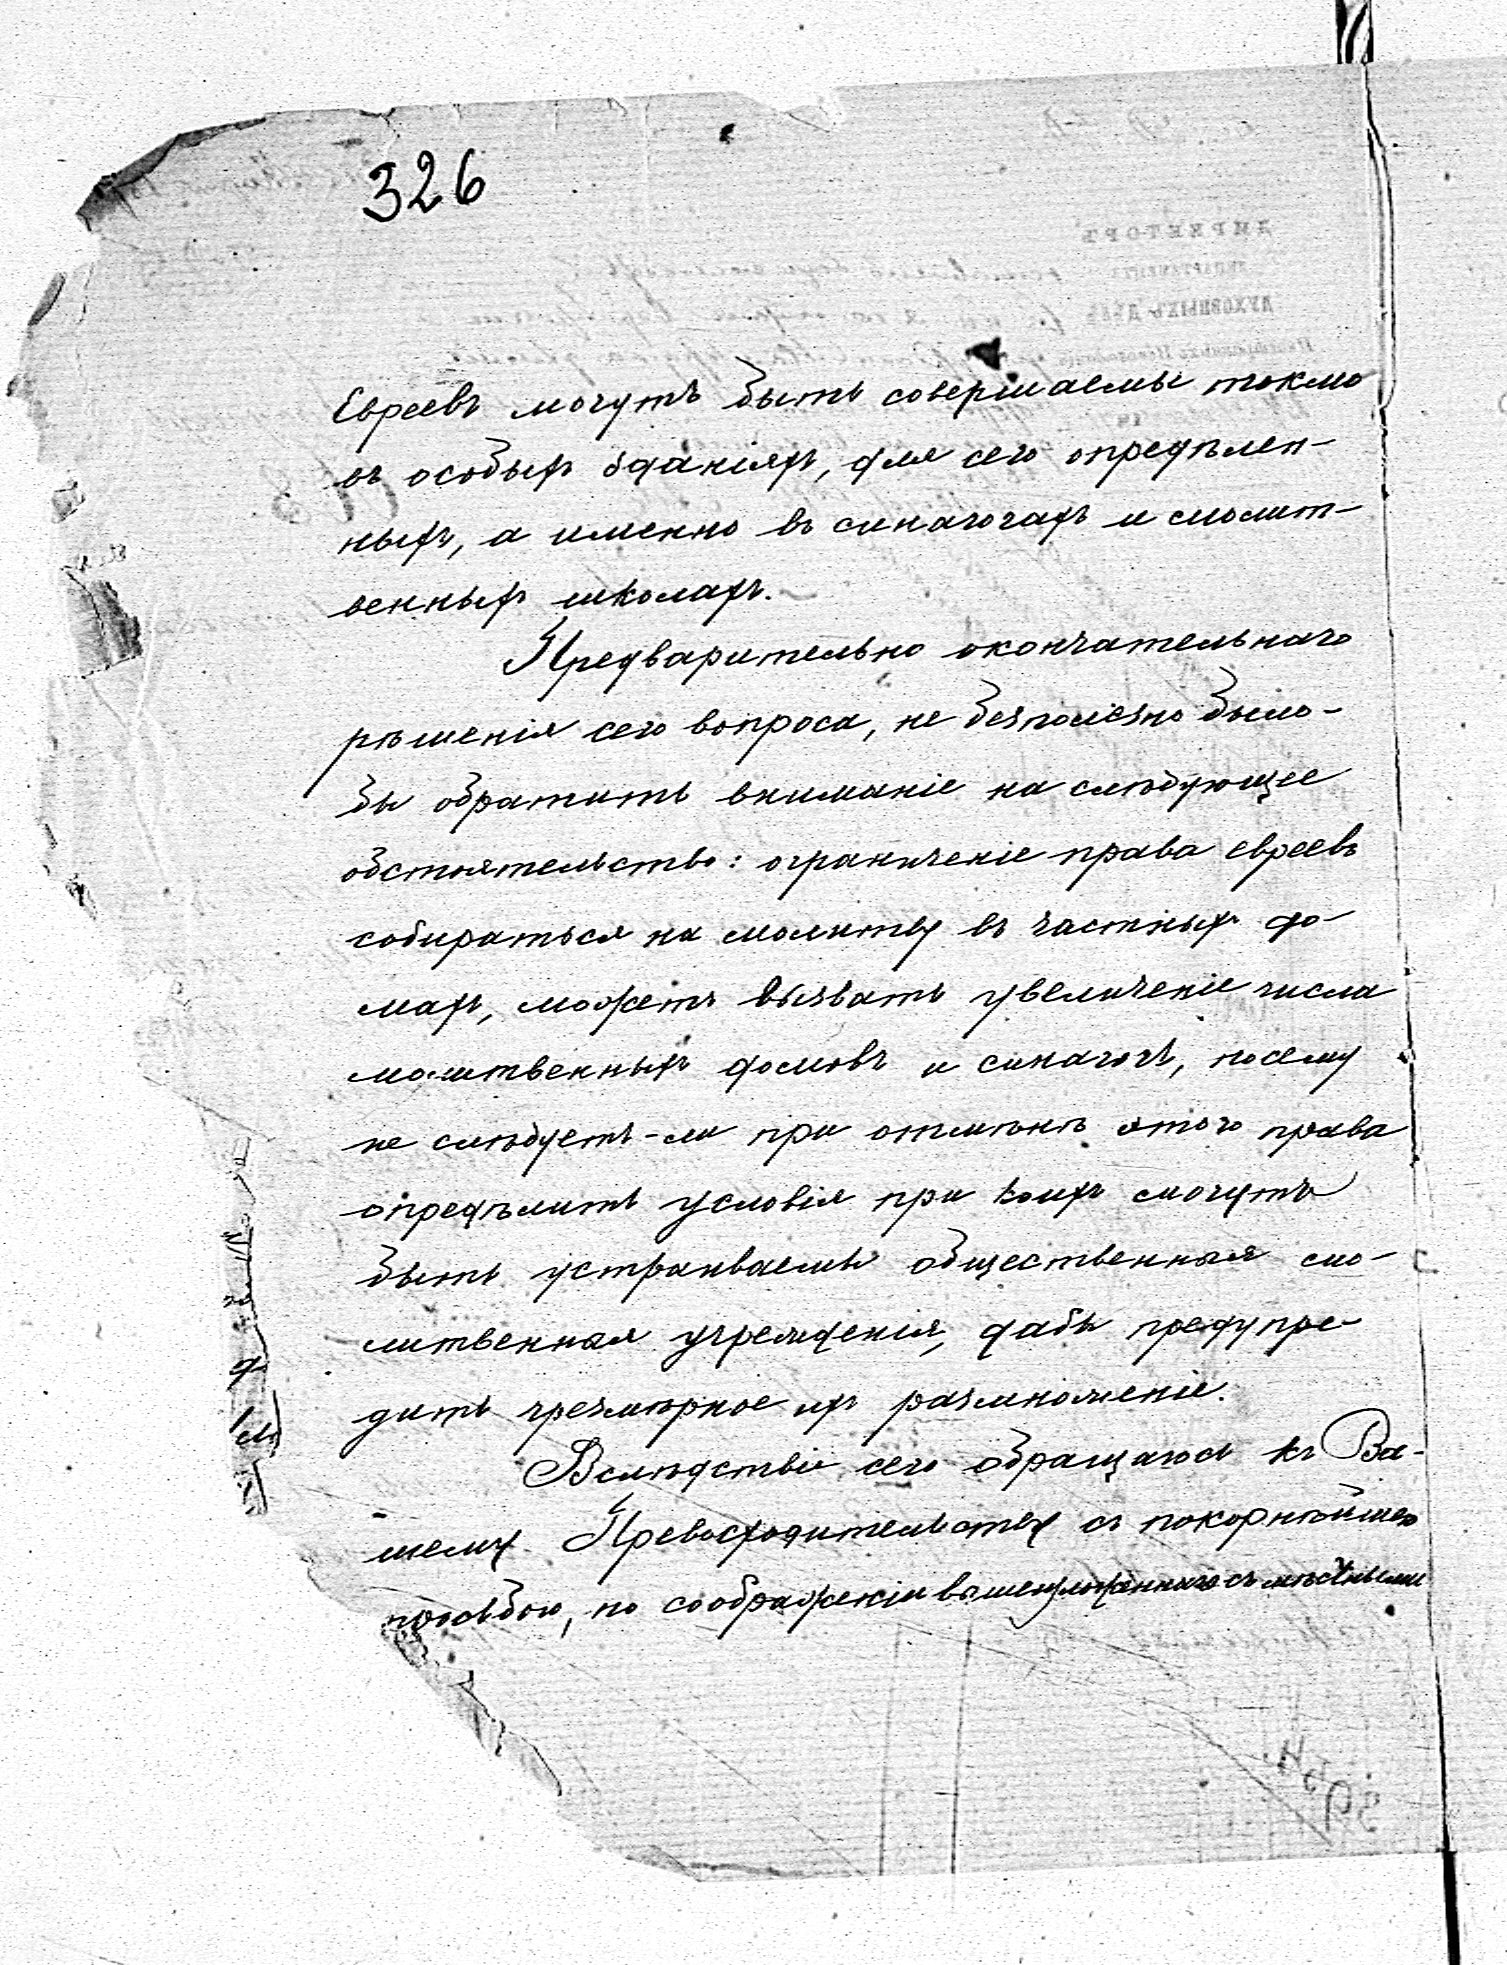 326
Евреевъ могутъ быть совершаемы токмо
въ особыхъ зданіяхъ, для сего опредѣлен-
ныхъ, а именно въ синагогахъ и молит-
венныхъ школахъ.
Предварительно окончательнаго
рѣшенія сего вопроса, не безполезно было-
бы обратить вниманіе на слѣдующее
обстоятельство: ограниченіе права евреевъ
собираться на молитву въ частныхъ до-
махъ, можетъ вызвать увеличеніе числа
молитвенныхъ домовъ и синагогъ, посему
не слѣдуетъ-ли при отмѣнѣ этого права
опредѣлить условія при коихъ могутъ
быть устраиваемы общественныя мо-
литвенныя учрежденія, дабы предупре-
дить чрезмѣрное ихъ размноженіе.
Вслѣдствіе сего обращаюсь къ Ва-
шему Превосходительству съ покорнѣйшею
просьбою, по соображеніи вышеизложеннаго съ мѣстными
ДИРЕКТОРЪ
ДЕПАРТАМЕНТА
ДУХОВНЫХЪ ДѢЛЪ